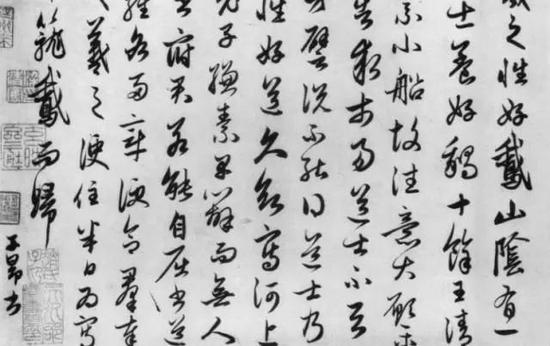 之性好鵞山陰有一
士養好鵝十餘王清
乘小船故往意大願
告求市易道士不
譬說不能得道士乃
性好道久欲寫河上
老子縑素早辦而無人
府君若能自屈書道
經各兩章便合群奉
羲之便住半日為寫
籠鵞而歸
子昂書